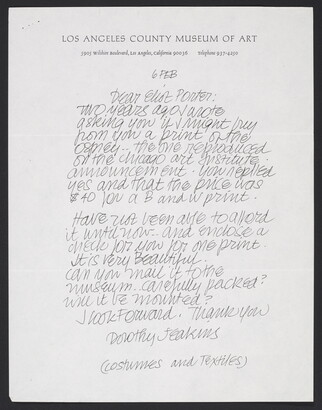 LOS ANGELES COUNTY MUSEUM OF ART
5905 Wilshire Boulevard, Los Angeles, California 90036 Telephone 937-4250
6 FEB
Dear Eliot Porter:
Two years ago I wrote
asking you if I might buy
from you a print of the
osprey.. the one reproduced
on the chicago art institute.
announcement. You replied
yes and that the price was
$40 for a B and W print.
Have not been able to afford
it until now.. and enclose a
check for you for one print.
It is very Beautiful.
can you mail it to the
museum.. carefully packed?
will it be mounted?
I look forward. Thank you
Dorothy Jeakins
(costumes and Textiles)